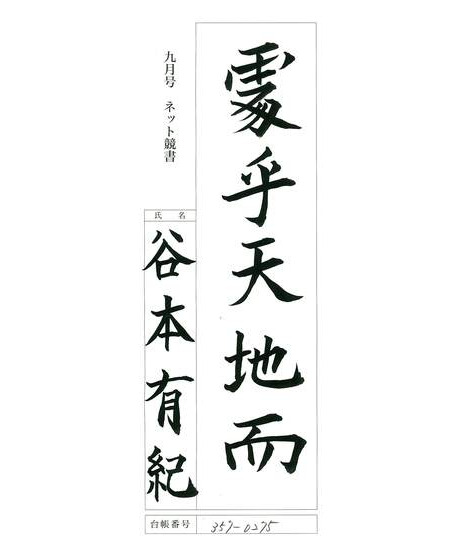 處乎天地而
九月号 ネット競書
氏 名
谷本有紀
台帳番号 357-0275